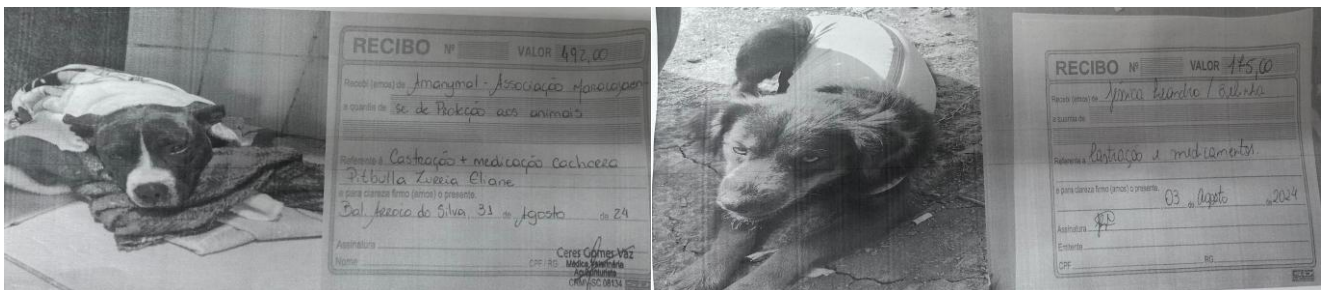 RECIBO Nº VALOR 492,00
Recebi (emos) de Amanymal - Associação
a quantia de se de Proteção aos animais
Referente à Castração + medicação cachorra
Pitbulla Zureia Eliane
e para clareza firmo (amos) o presente.
Bal. Arroio do Silva, 31 de Agosto de 24
Assinatura
Nome CPF / RG
Ceres Gomes Vaz
Médica Veterinária
Acupunturista
CRMV-SC 08134
RECIBO Nº VALOR 175,00
Recebi (emos) de Leandro / Zelinha
a quantia de
Referente à Castração e medicamentos.
e para clareza firmo (amos) o presente.
03 de Agosto de 2024
Assinatura
Emitente
CPF RG